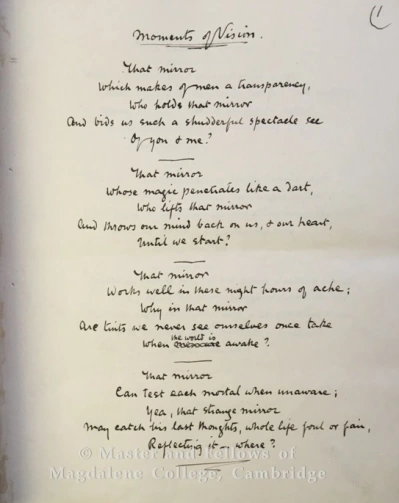 (1
Moments of Vision.
That mirror
Which makes of men a transparency,
Who holds that mirror
And bids us such a shudderful spectacle see
Of you & me?
That mirror
Whose magic penetrates like a dart,
Who lifts that mirror
And throws our mind back on us, & our heart,
Until we start?
That mirror
Works well in these night hours of ache;
Why in that mirror
Are tints we never see ourselves once take
the world is
When awake?
That mirror
Can test each mortal when unaware;
Yea, that strange mirror
May catch his last thoughts, whole life foul or fair,
Reflecting it – where?
© Master and Fellows of
Magdalene College, Cambridge